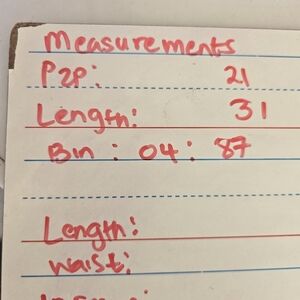 Measurements
P2P: 21
Length: 31
Bin : 04: 87
Length:
Waist: